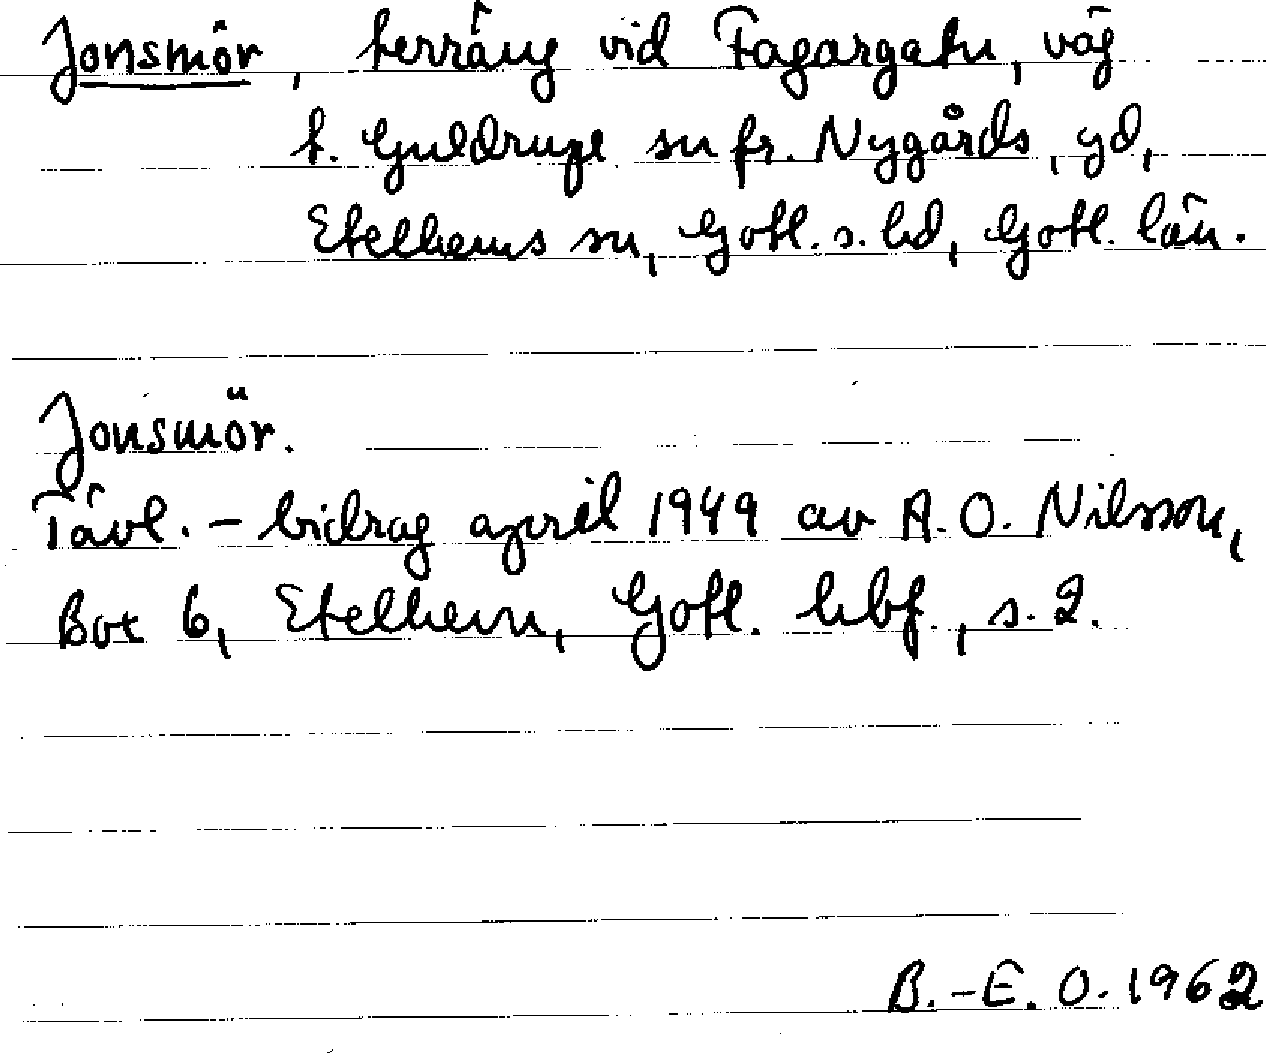 Jonsmör, terräng vid Fagargatu, väg
t. Guldrupe sn fr. Nygårds, gd,
Etelhems sn, Gotl. s. hd, Gotl. län.
Jonsmör.
Tävl. - bidrag april 1949 av A. O. Nilsson,
Box 6, Etelhem, Gotl. hbf., s. 2.
B.-E. O. 1962